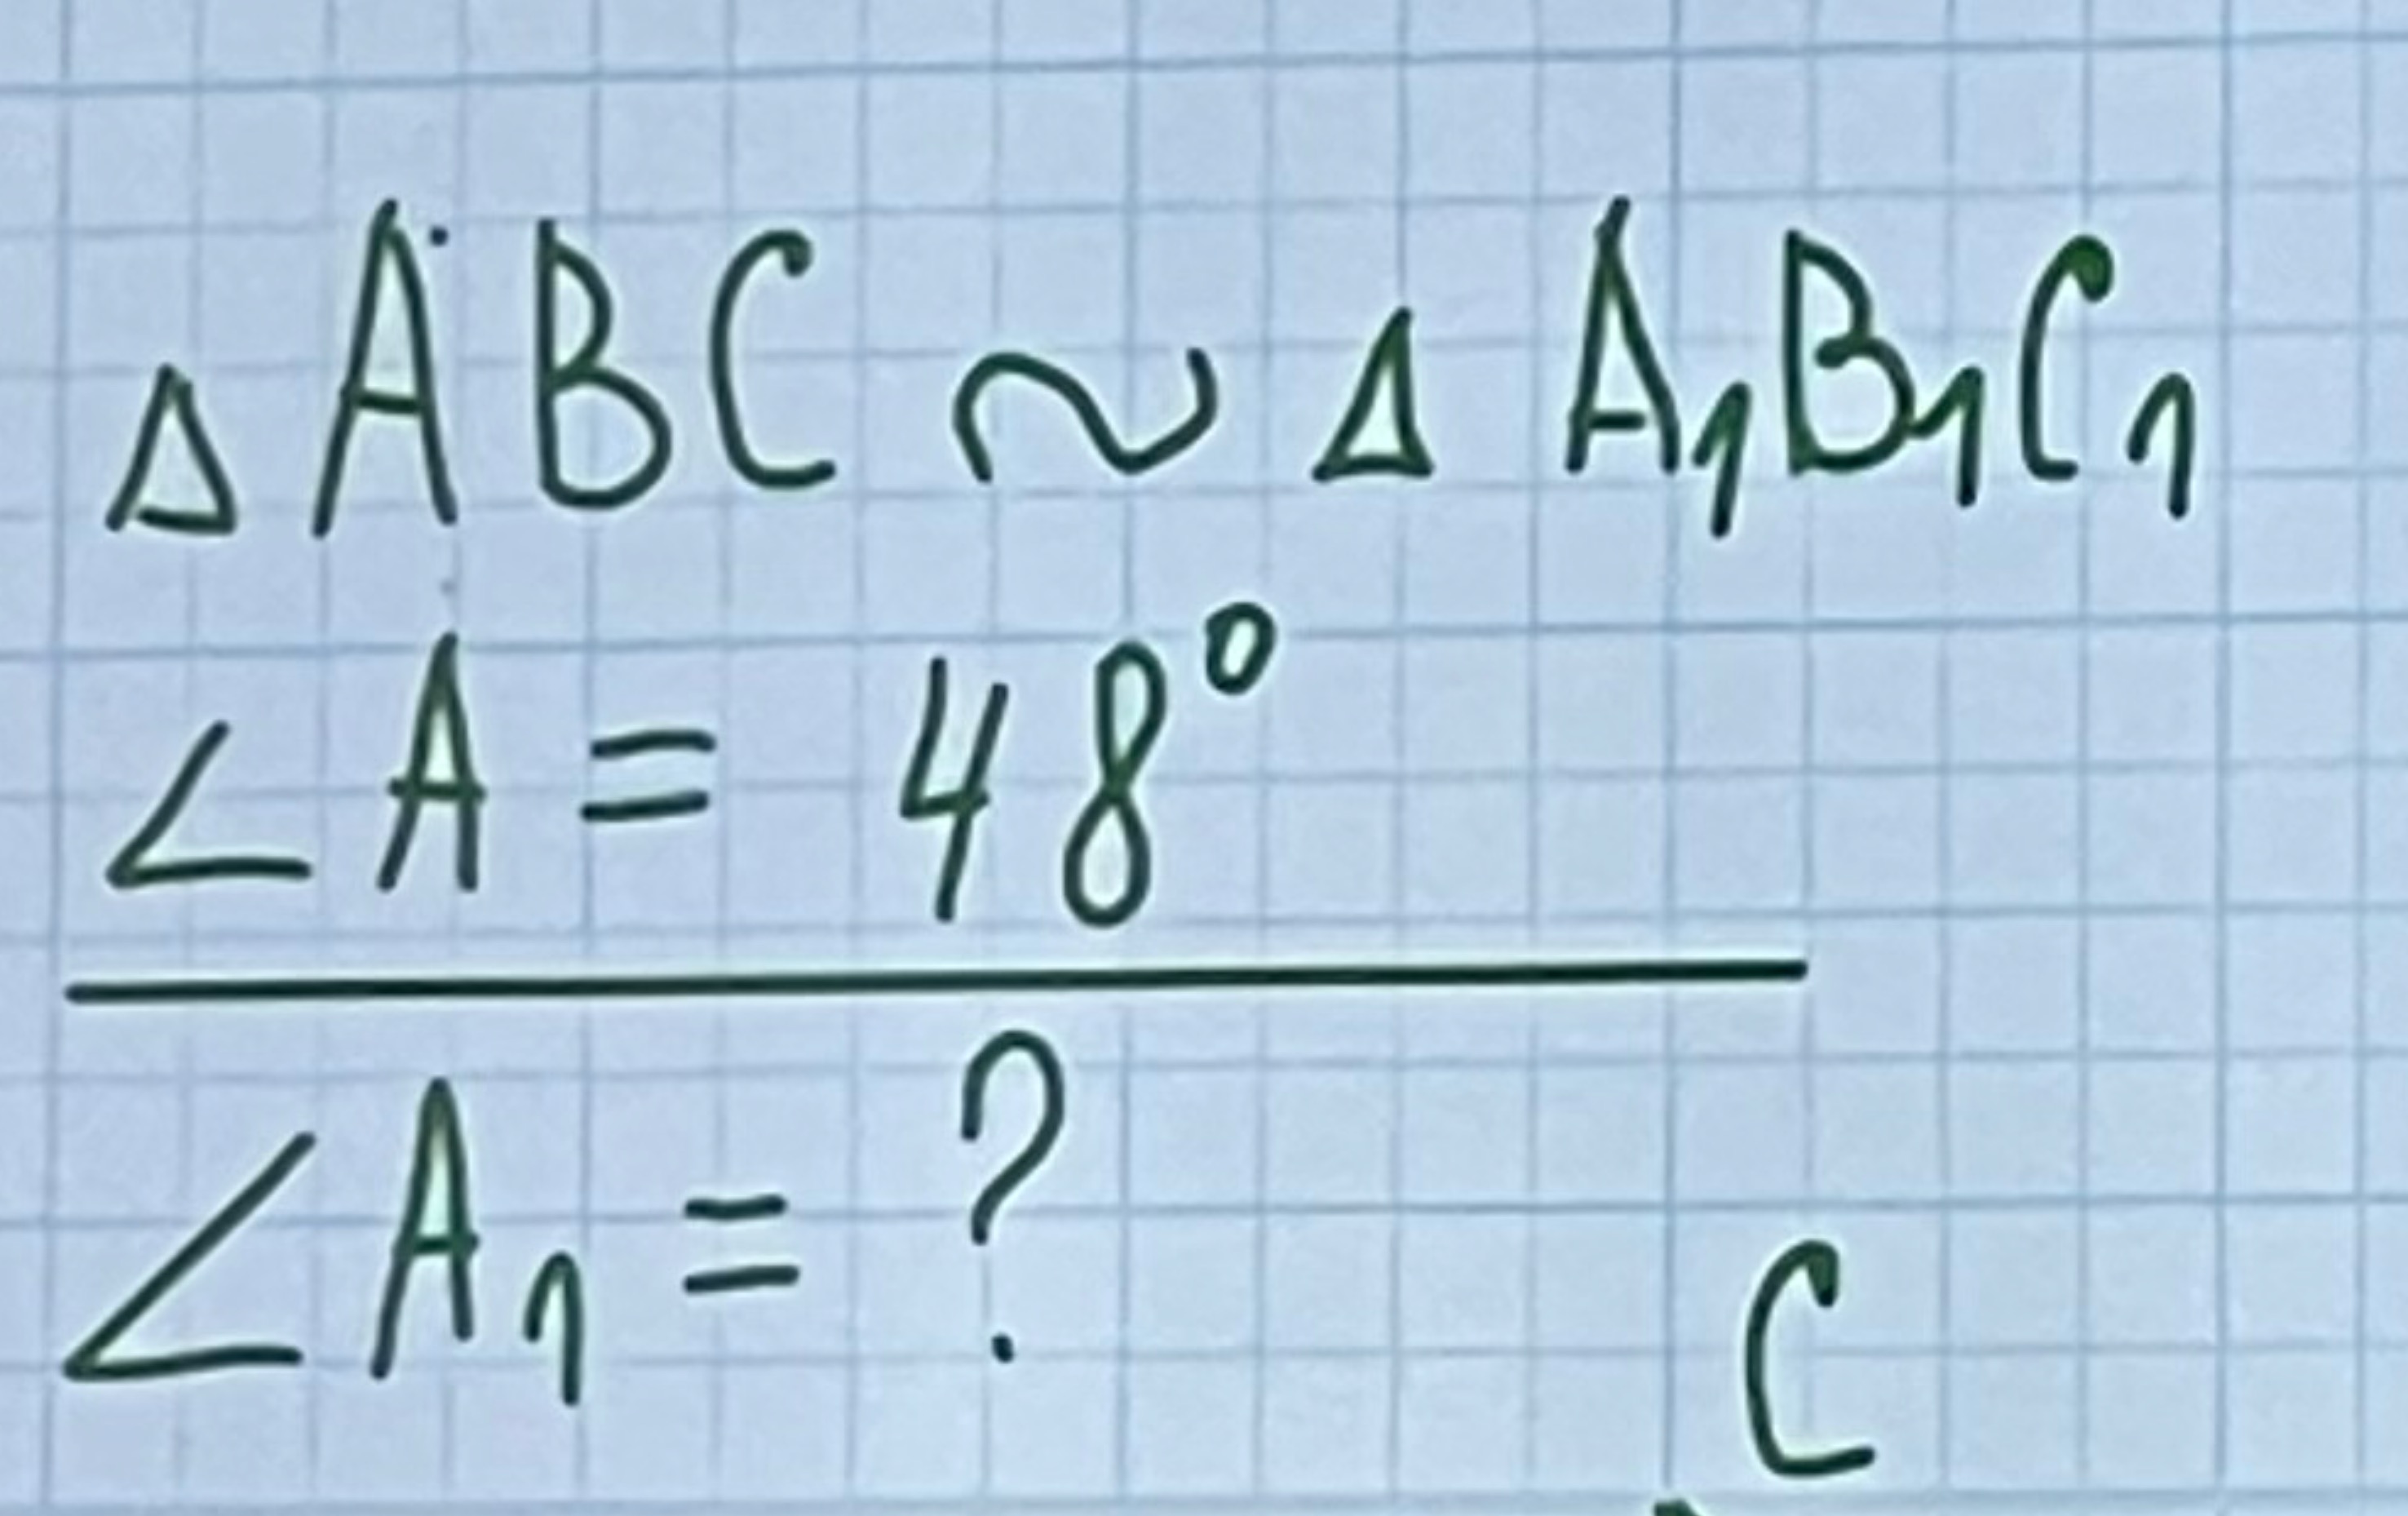 △ABC ~ △A₁B₁C₁
∠A = 48°
∠A₁ = ?
C